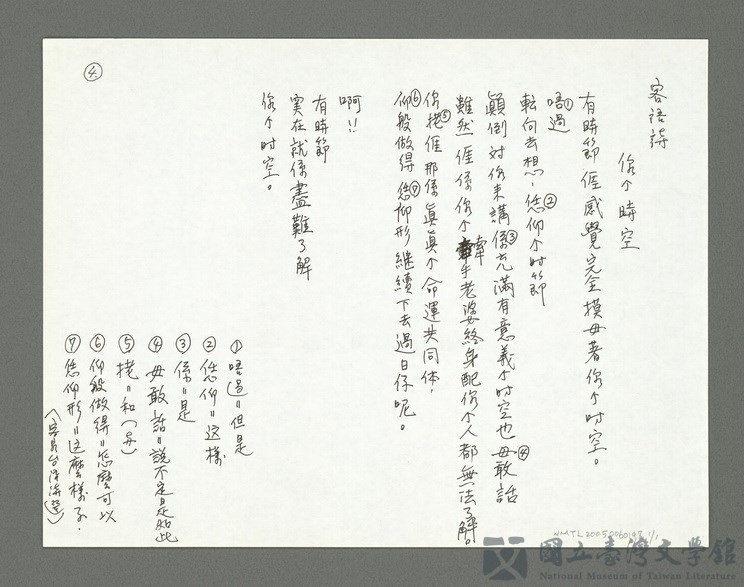 ④
客語詩
你个時空
有時節𠊎感覺完全摸毋著你个时空。
唔過①
転向去想,恁仰个时節②
顚倒对你来講係充满有意義个时空也毋敢話③④
雖然𠊎係你个牽手老婆終身配你个人都無法了解。
你㧯𠊎那係眞眞个命運共同体,⑤
仰般做得恁仰形継續下去過日仔呢。⑥⑦
啊!!
有時節
実在就係盡難了解
你个时空。
①唔過=但是
②恁仰=这樣
③係=是
④毋敢話=說不定是如此
⑤㧯=和(與)
⑥仰般做得=怎麼可以
⑦恁仰形=这麼樣子.
NMTL20050060197 1/1
國立臺灣文學館
National Museum of Taiwan Literature